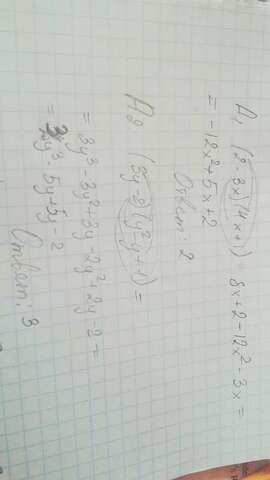 А1 (2-3x)(4x+1) = 8x+2-12x²-3x =
= -12x²+5x+2
Ответ: 2
А2 (3y-2)(y²-y+1) =
= 3y³-3y²+3y-2y²+2y-2 =
= 3y³-5y+5y-2
Ответ: 3